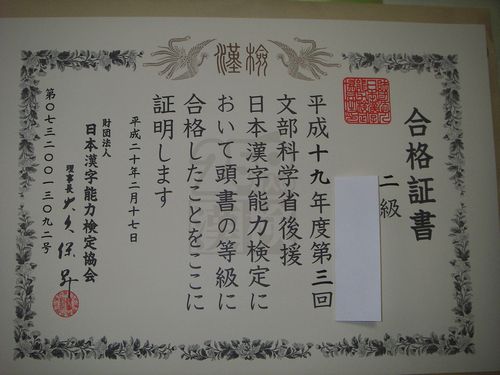 漢検
合格証書
二級
平成十九年度第三回
文部科学省後援
日本漢字能力検定に
おいて頭書の等級に
合格したことをここに
証明します
平成二十年二月十七日
財団法人
日本漢字能力検定協会
理事長 大久保昇
第〇七三二〇〇一三〇九二号